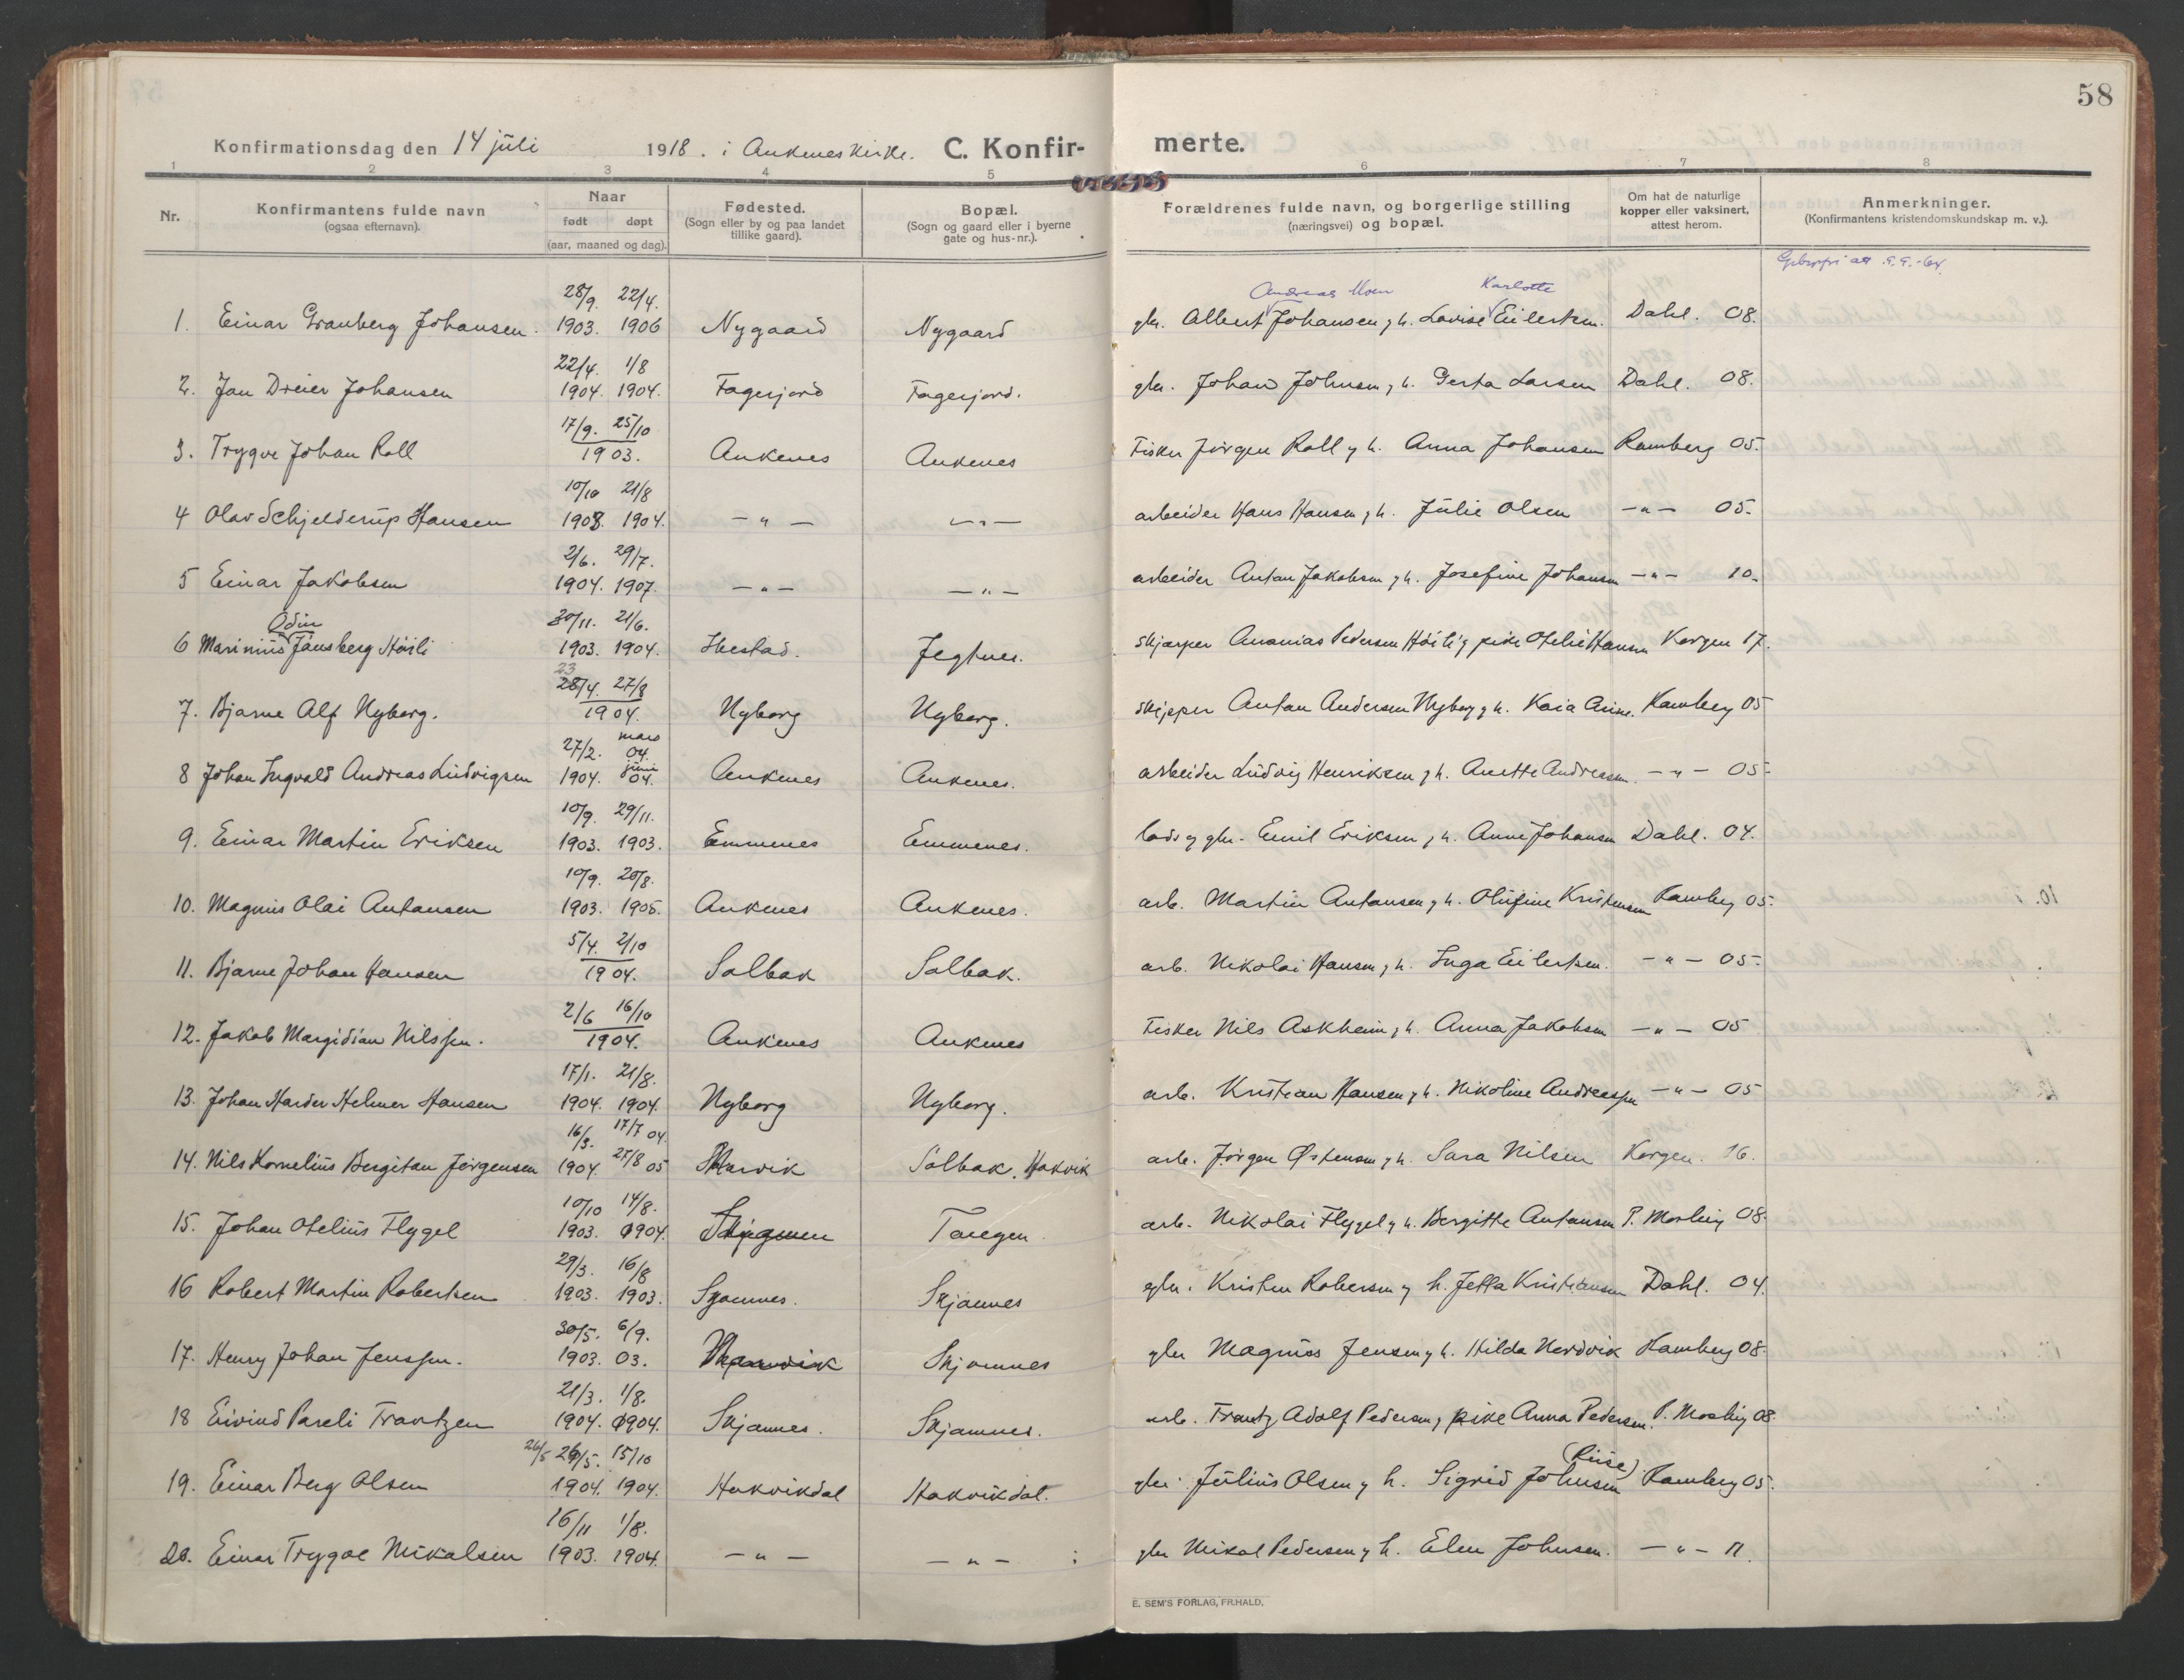 58
Konfirmationsdag den 14 juli 1918. i Ankenes kirke. C. Konfir- merte.
1 2 3 4 5 6 7 8
Nr.
Konfirmantens fulde navn
(ogsaa efternavn).
Naar
født døpt
(aar, maaned og dag).
Fødested.
(Sogn eller by og paa landet
tillike gaard).
Bopæl.
(Sogn og gaard eller i byerne
gate og hus-nr.).
Forældrenes fulde navn, og borgerlige stilling
(næringsvei) og bopæl.
Om hat de naturlige
kopper eller vaksinert,
attest herom.
Anmerkninger.
(Konfirmantens kristendomskundskap m. v.).
28/9. 22/4. Andreas Moen Karlotte
1. Einar Granberg Johansen. 1903. 1906 Nygaard Nygaard gbr. Albert Johansen, h. Lovise Eilertsen. Dahl. 08.
22/4. 1/8
2. Jan Dreier Johansen 1904. 1904. Fagerjord Fagerjord. gbr. Johan Johnsen, h. Gerta Larsen Dahl. 08.
17/9. 25/10
3. Trygve Johan Roll 1903. Ankenes Ankenes Fisker Jörgen Roll og h. Anna Johansen Ramberg 05.
10/10 21/8
4 Olav Schjelderup Hansen 1903. 1904. -"- -"- arbeider Hans Hansen, h. Julie Olsen -"- 05.
2/6. 29/7.
5 Einar Jakobsen 1904. 1907. -"- -"- arbeider Antan Jakobsen, h. Josefine Johansen -"- 10.
Odin 30/11. 21/6.
6 Marinius Jansberg Höili 1903. 1904. Ibestad. Jegtnes. Ananias Pedersen Höili og pike Otelie Hansen Korgen 17.
23
28/4. 27/8
7. Bjarne Alf Nyborg. 1904. Nyborg Nyborg. skipper Antan Andersen Nyborg, h. Kaia Ramberg 05
27/2. mars 04.
juni
8 Johan Ingvald Andreas Ludvigsen 1904. 04. Ankenes Ankenes. arbeider Ludvig Henriksen, h. Anette Andreassen. -"- 05.
10/9. 29/11.
9. Einar Martin Eriksen 1903. 1903. Emmenes Emmenes. gbr. Emil Eriksen, h. Anne Johansen Dahl. 04.
10/9. 20/8.
10. Magnus Olai Antansen 1903. 1905. Ankenes Ankenes. arb. Martin Antansen, h. Olufine Kristensen Ramberg 05.
5/4. 2/10
11. Bjarne Johan Hansen 1904. Solbak Solbak. arb. Nikolai Hansen, h. Inga Eilertsen. -"- 05.
2/6 16/10
12. Jakob Margidian Nilssen. 1904. Ankenes Ankenes Fisker Nils Askheim, h. Anna Jakobsen -"- 05
17/1. 21/8.
13. Johan Harder Helmer Hansen 1904. 1904. Nyborg Nyborg. arb. Kristian Hansen, h. Nikoline Andreassen -"- 05
16/3. 17/7 04.
14. Nils Kornelius Bergitan Jörgensen 1904. 27/8 05 Solbak. Hakvik arb. Jörgen Østensen, h. Sara Nilsen Korgen. 16.
10/10 14/8.
15. Johan Otelius Flygel 1903. 1904. Tangen arb. Nikolai Flygel, h. Bergitte Antansen P. Mosling 08.
29/3. 16/8
16 Robert Martin Robertsen 1903. 1903. Sjomnes. Skjomnes gbr. Kristen Robersen og h. Jetta Kristiansen Dahl. 04.
30/5. 6/9.
17. Henry Johan Jenssen. 1903. 03. Skjomnes gbr Magnus Jensen, h. Hilda Nordvik Ramberg 08.
21/3. 1/8.
18 Eivind Pareli Trantzen 1904. 1904. Skjomnes. Skjomnes. arb. Frantz Adolf Pedersen, pike Anna Pedersen. P. Mosling 08
26/5 26/5. 15/10 (Riise)
19. Einar Berg Olsen 1904. 1904. Hakvikdal Hakvikdal. gbr. Julius Olsen, h. Sigrid Johnsen Ramberg 05.
16/11 1/8.
20. Einar Trygve Mikalsen 1903. 1904. -"- -"- gbr Mikal Pedersen, h. Elen Johnsen. -"- 11.
E. SEM'S FORLAG, FR.HALD.